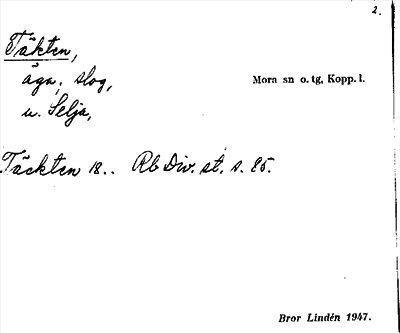 2.
Täkten,
äga, slog,
Mora sn o. tg, Kopp. l.
u. Selja,
Täckten 18.. Rb Div. st. s. 85.
Bror Lindén 1947.